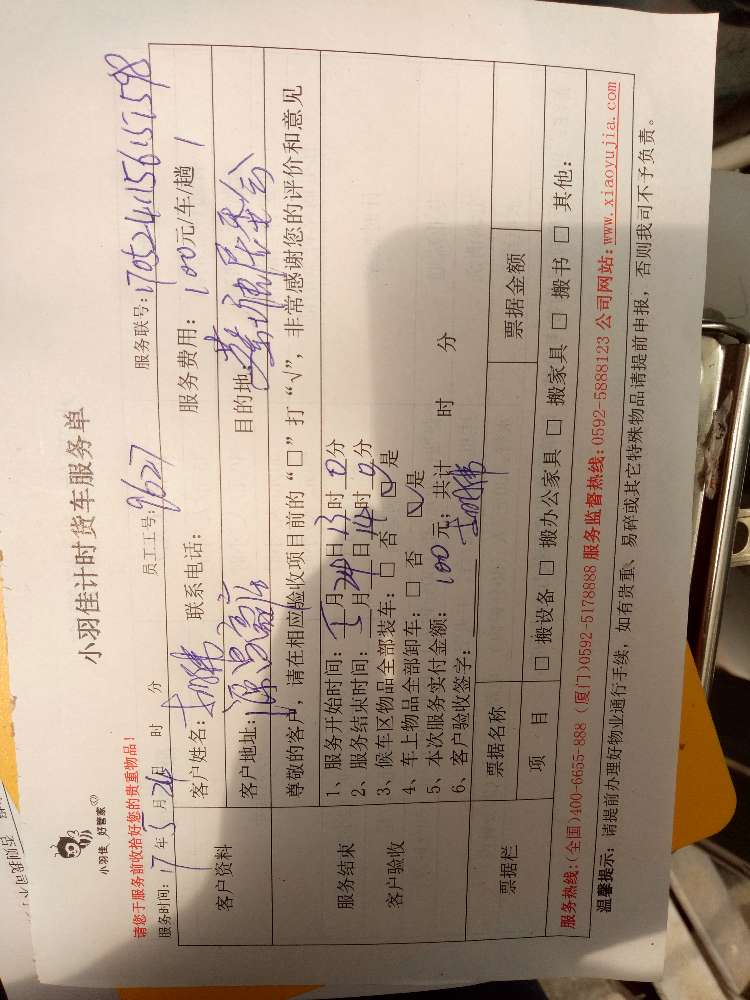 小羽佳 好管家
小羽佳计时货车服务单
请您于服务前收拾好您的贵重物品!
服务时间: 17年5月24日 时 分 员工工号: 9627 服务联号: 1705241156151598
客户资料
客户姓名: 联系电话: 服务费用: 100元/车/趟 1
客户地址: 目的地: 居委会
尊敬的客户,请在相应验收项目前的“□”打“√”,非常感谢您的评价和意见
服务结束
客户验收
1、服务开始时间: 5月24日13时0分
2、服务结束时间: 月24日14时0分
3、候车区物品全部装车: □ 否 ☑是
4、车上物品全部卸车: □ 否 ☑是
5、本次服务实付金额: 100元; 共计 时 分
6、客户验收签字:
票据栏
票据名称 票据金额
项 目 □ 搬设备 □ 搬办公家具 □ 搬家具 □ 搬书 □ 其他:
服务热线:(全国)400-6655-888 (厦门)0592-5178888 服务监督热线:0592-5888123 公司网站:www.xiaoyujia.com
温馨提示: 请提前办理好物业通行手续, 如有贵重、易碎或其它特殊物品请提前申报, 否则我司不予负责。